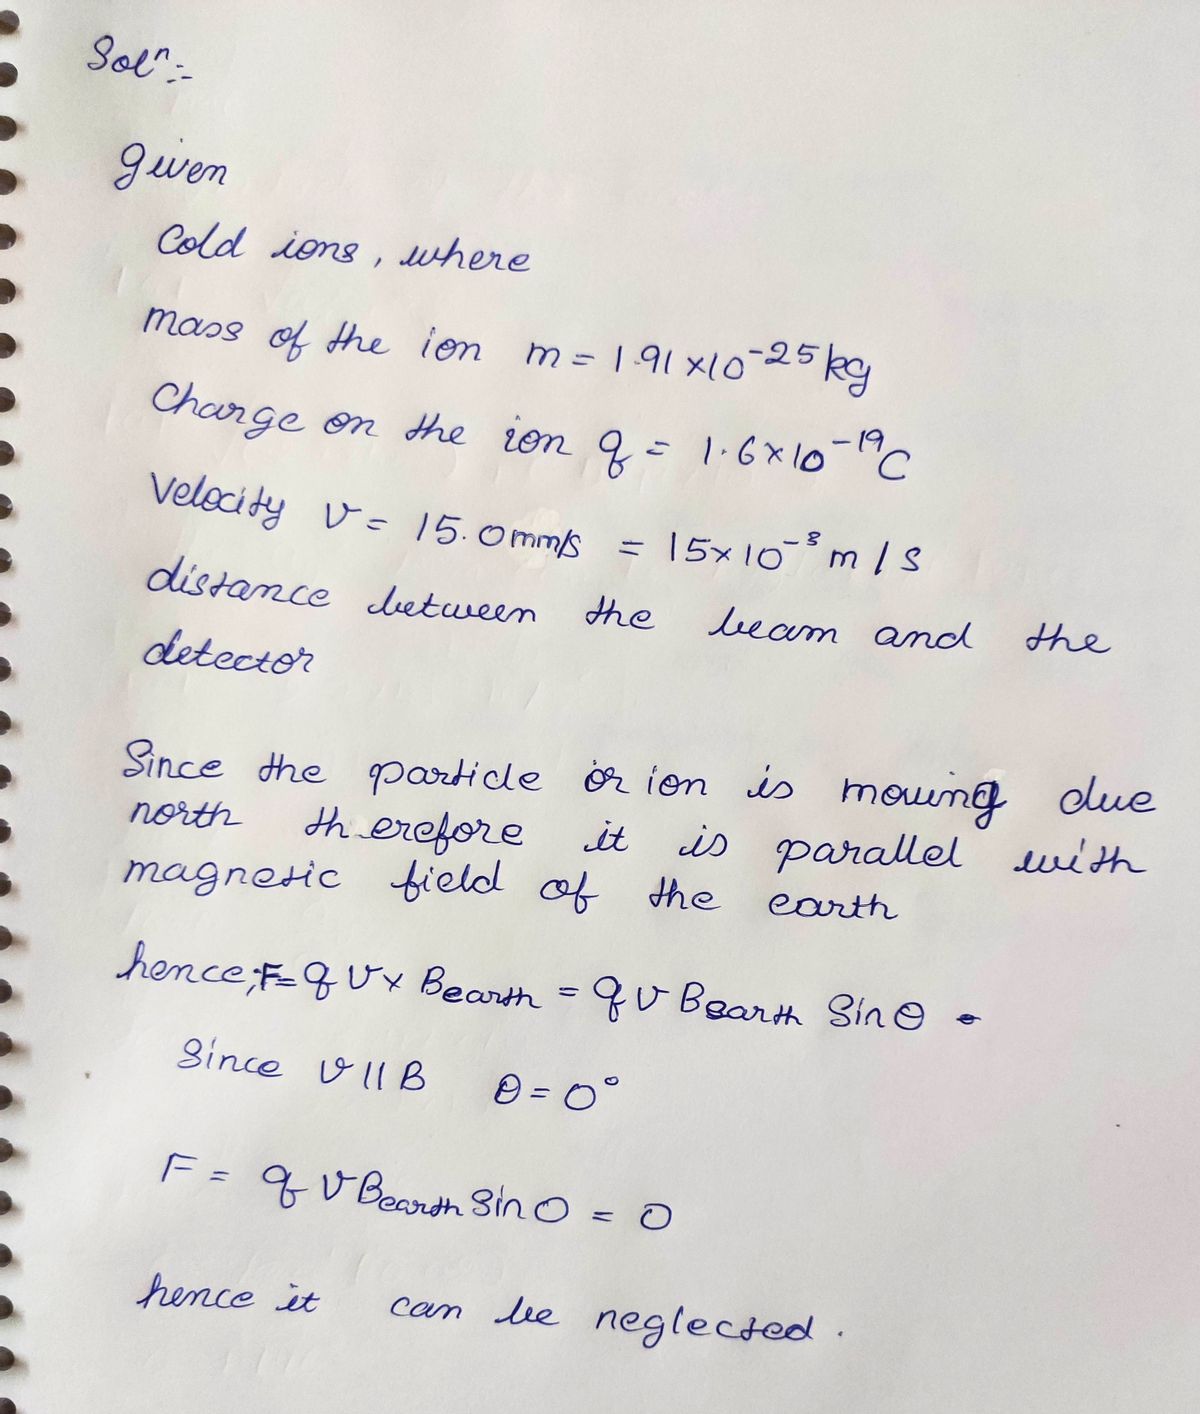 Solⁿ :-
given
Cold ions, where
mass of the ion m = 1.91 x10⁻²⁵ kg
Charge on the ion q = 1.6x10⁻¹⁹C
Velocity v = 15.0mm/s = 15x10⁻³ m/s
distance between the beam and the
detector
Since the particle or ion is moving due
north therefore it is parallel with
magnetic field of the earth
hence; F= q v x Bearth = q v Bearth Sin θ
Since v || B θ = 0°
F = q v Bearth Sin 0 = 0
hence it can be neglected.